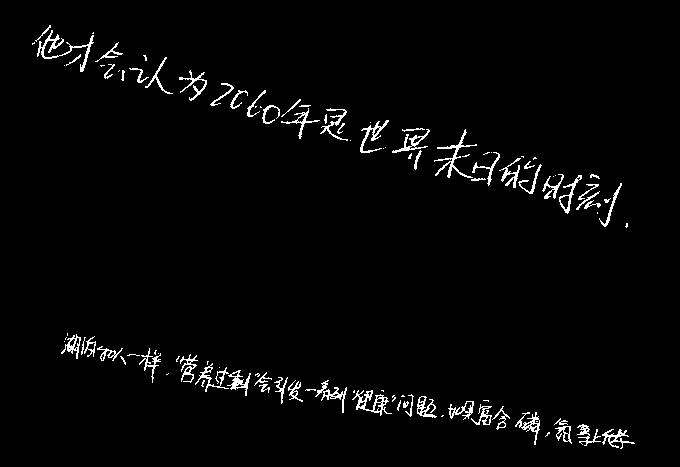 他才会认为2060年是世界末日的时刻.
湖泊和人一样，“营养过剩”会引发一系列“健康”问题，如果富含磷，氮等化学